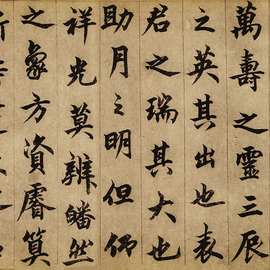 萬壽之靈三辰
之英其出也表
君之瑞其大也
助月之明但仰
祥光莫辨皤然
之象方資睿筭